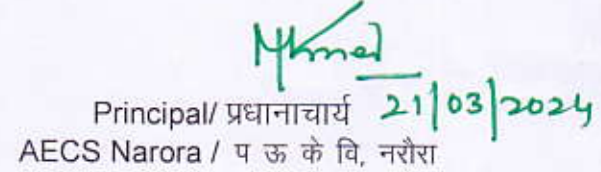 Principal/ प्रधानाचार्य 21/03/2024
AECS Narora / प ऊ के वि, नरौरा